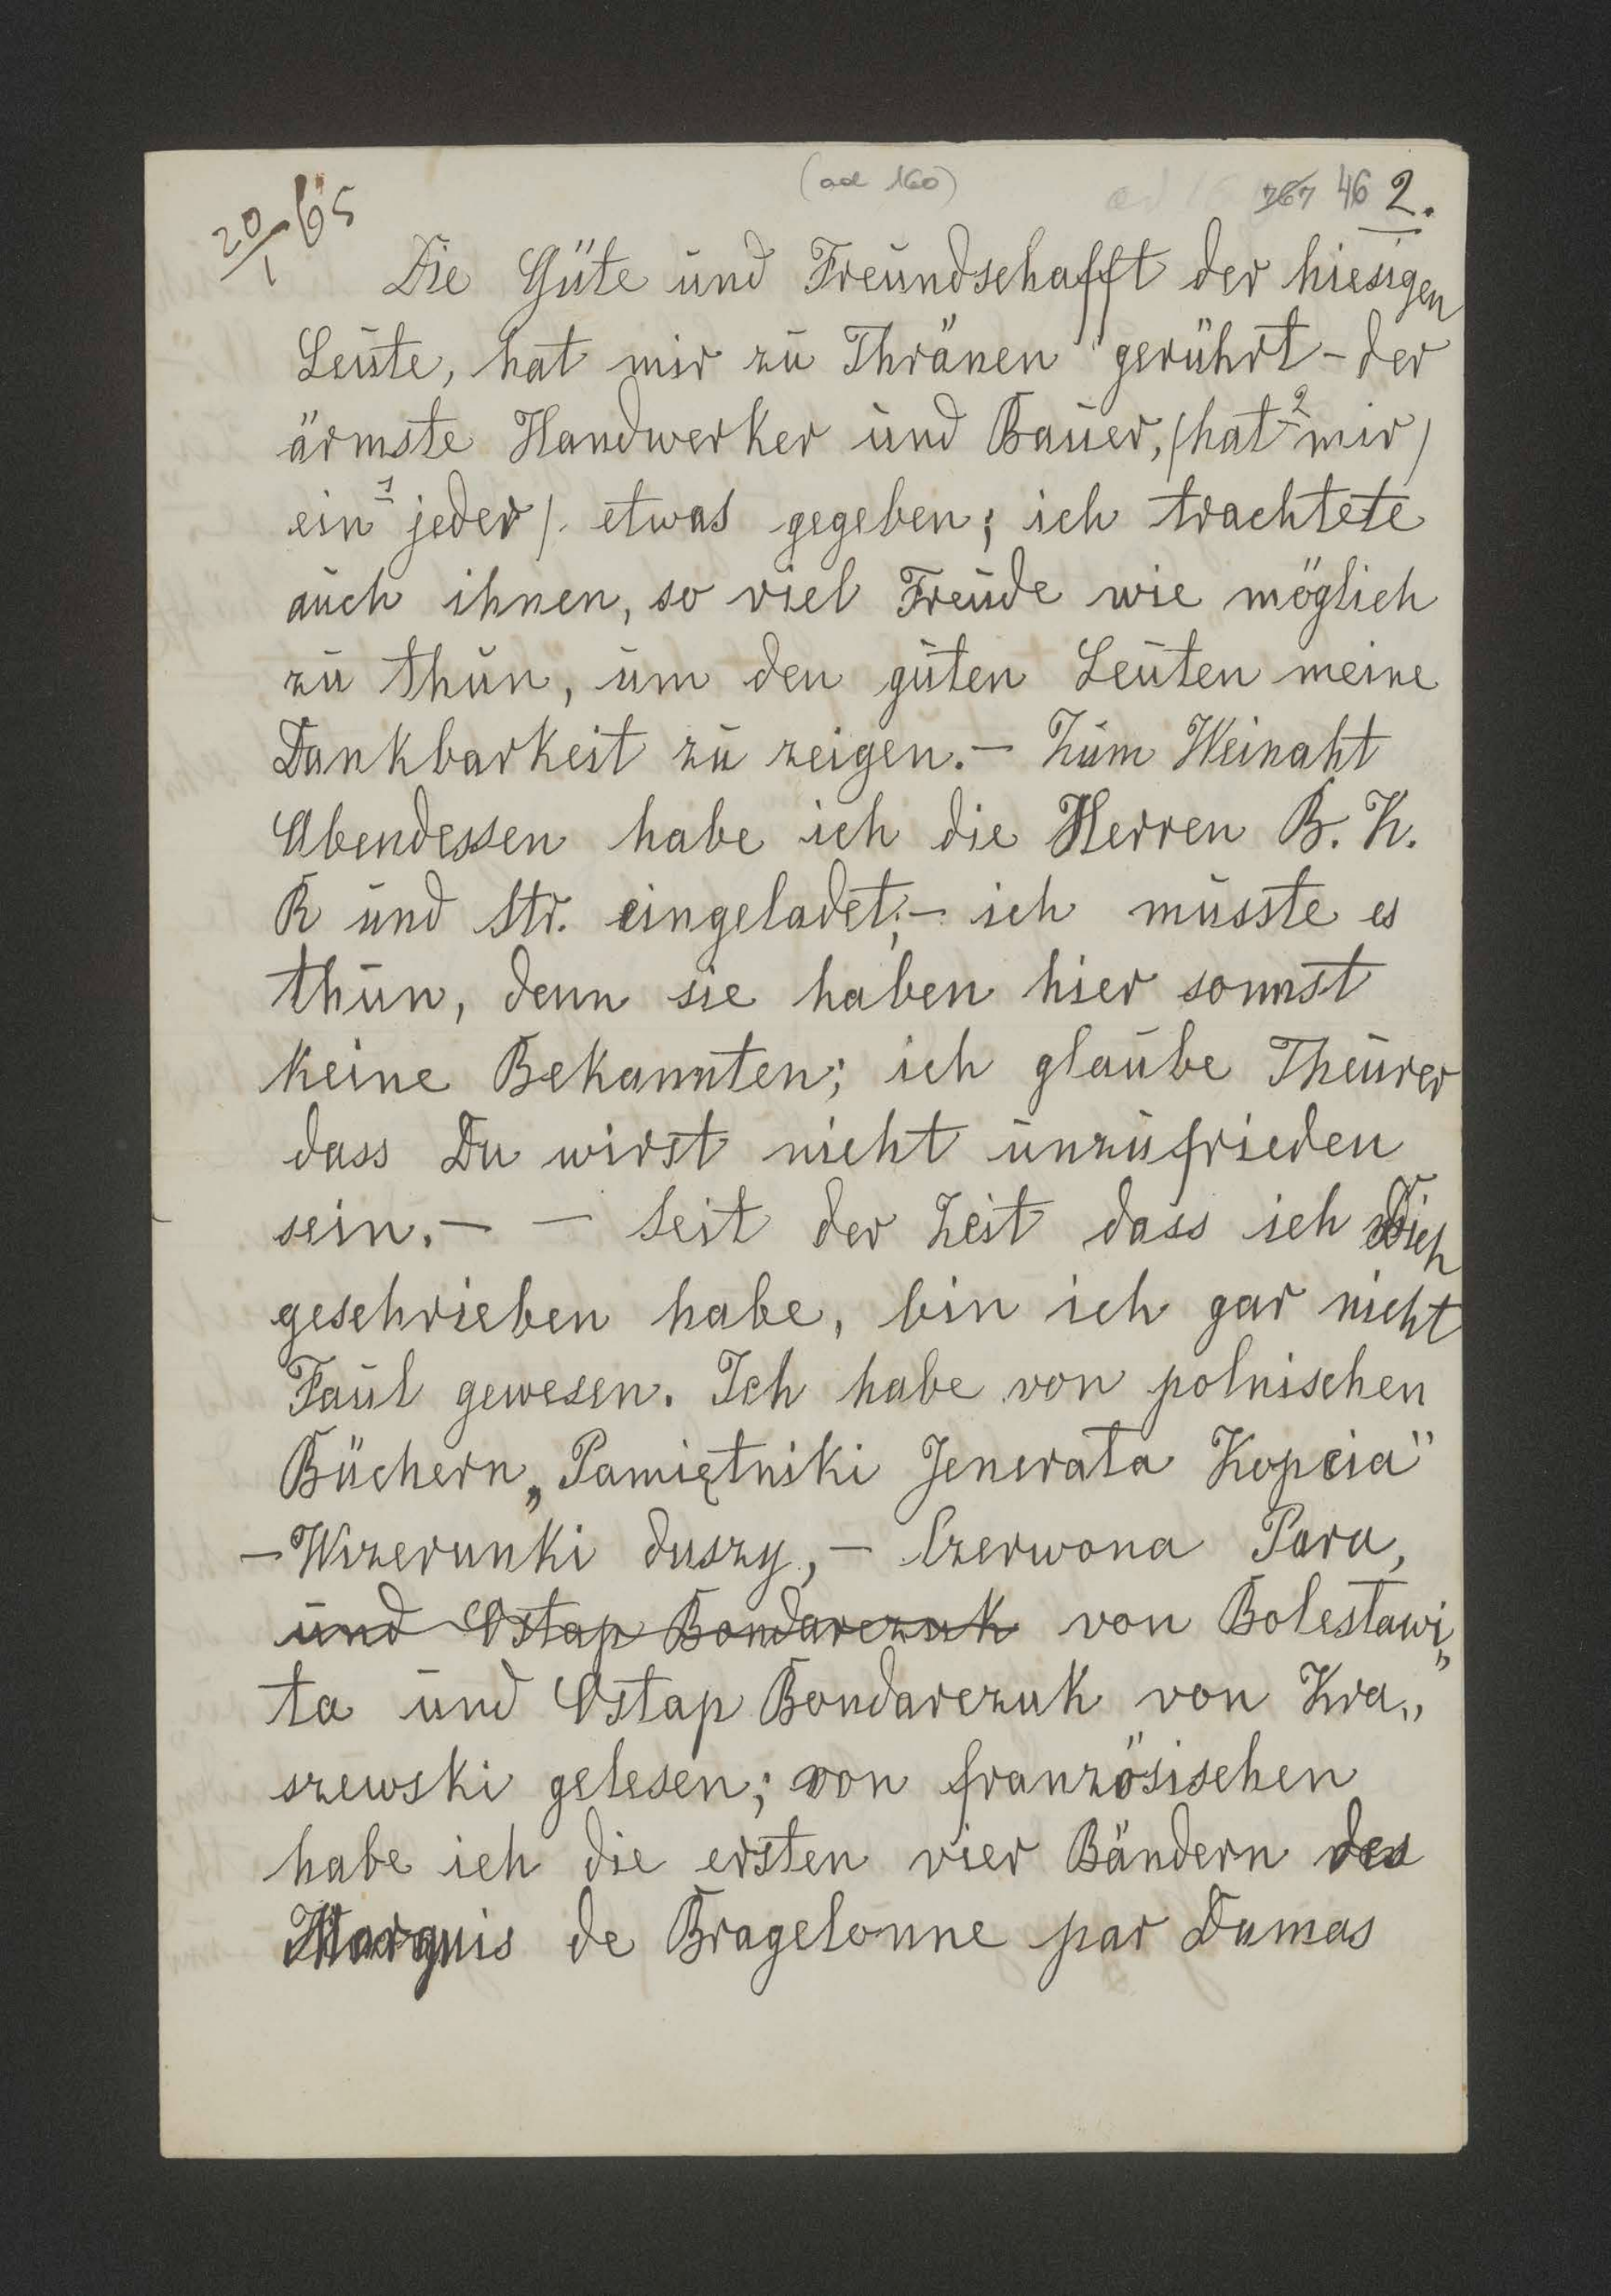 20/1 65
(ad 160)
767 46 2.
Die Güte und Freundschafft der hiesigen
Leute, hat mir zu Thränen gerührt - der
ärmste Handwerker und Bauer, /hat 2 mir/
ein 1 jeder/. etwas gegeben; ich trachtete
auch ihnen, so viel Freude wie möglich
zu thun, um den guten Leuten meine
Dankbarkeit zu zeigen. — Zum Weinaht
Abendessen habe ich die Herren B. K.
R und Str. eingeladet; — ich musste es
thun, denn sie haben hier sonnst
keine Bekannten; ich glaube Theurer
dass Du wirst nicht unzufrieden
sein. — — Seit der Zeit dass ich Dich
geschrieben habe, bin ich gar nicht
Faul gewesen. Ich habe von polnischen
Büchern „Pamiętniki Jenerała Kopcia"
— Wizerunki duszy, — Czerwona Para,
und Ostap Bondarczuk von Bolesławi„
ta und Ostap Bondarczuk von Kra„
szewski gelesen; von französischen
habe ich die ersten vier Bändern des
Marquis de Bragelonne par Dumas